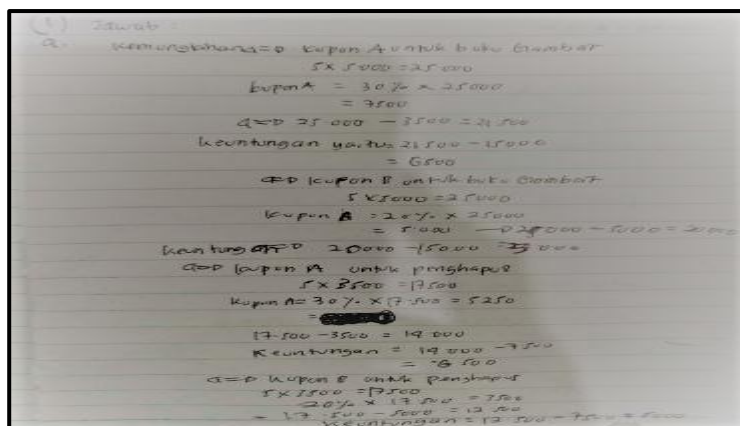 (1) Jawab :
a. Kemungkinan => kupon A untuk buku Gambar
5 x 5000 = 25000
kupon A = 30% x 25000
= 7500
=> 25 000 - 3500 = 21 500
keuntungan yaitu = 21 500 - 15000
= 6500
=> kupon B untuk buku Gambar
5 x 5000 = 25000
kupon B = 20% x 25000
= 5000 → 25000 - 5000 = 20000
keuntung => 20000 - 15000 = 5000
=> kupon A untuk penghapus
5 x 3500 = 17500
kupon A = 30% x 17.500 = 5250
=
17.500 - 3500 = 14 000
Keuntungan = 14 000 - 7500
= 6 500
=> kupon B untuk penghapus
5 x 3500 = 17500
20% x 17 500 = 3500
= 17.500 - 5000 = 12 500
Keuntungan = 12 500 - 7500 = 5000